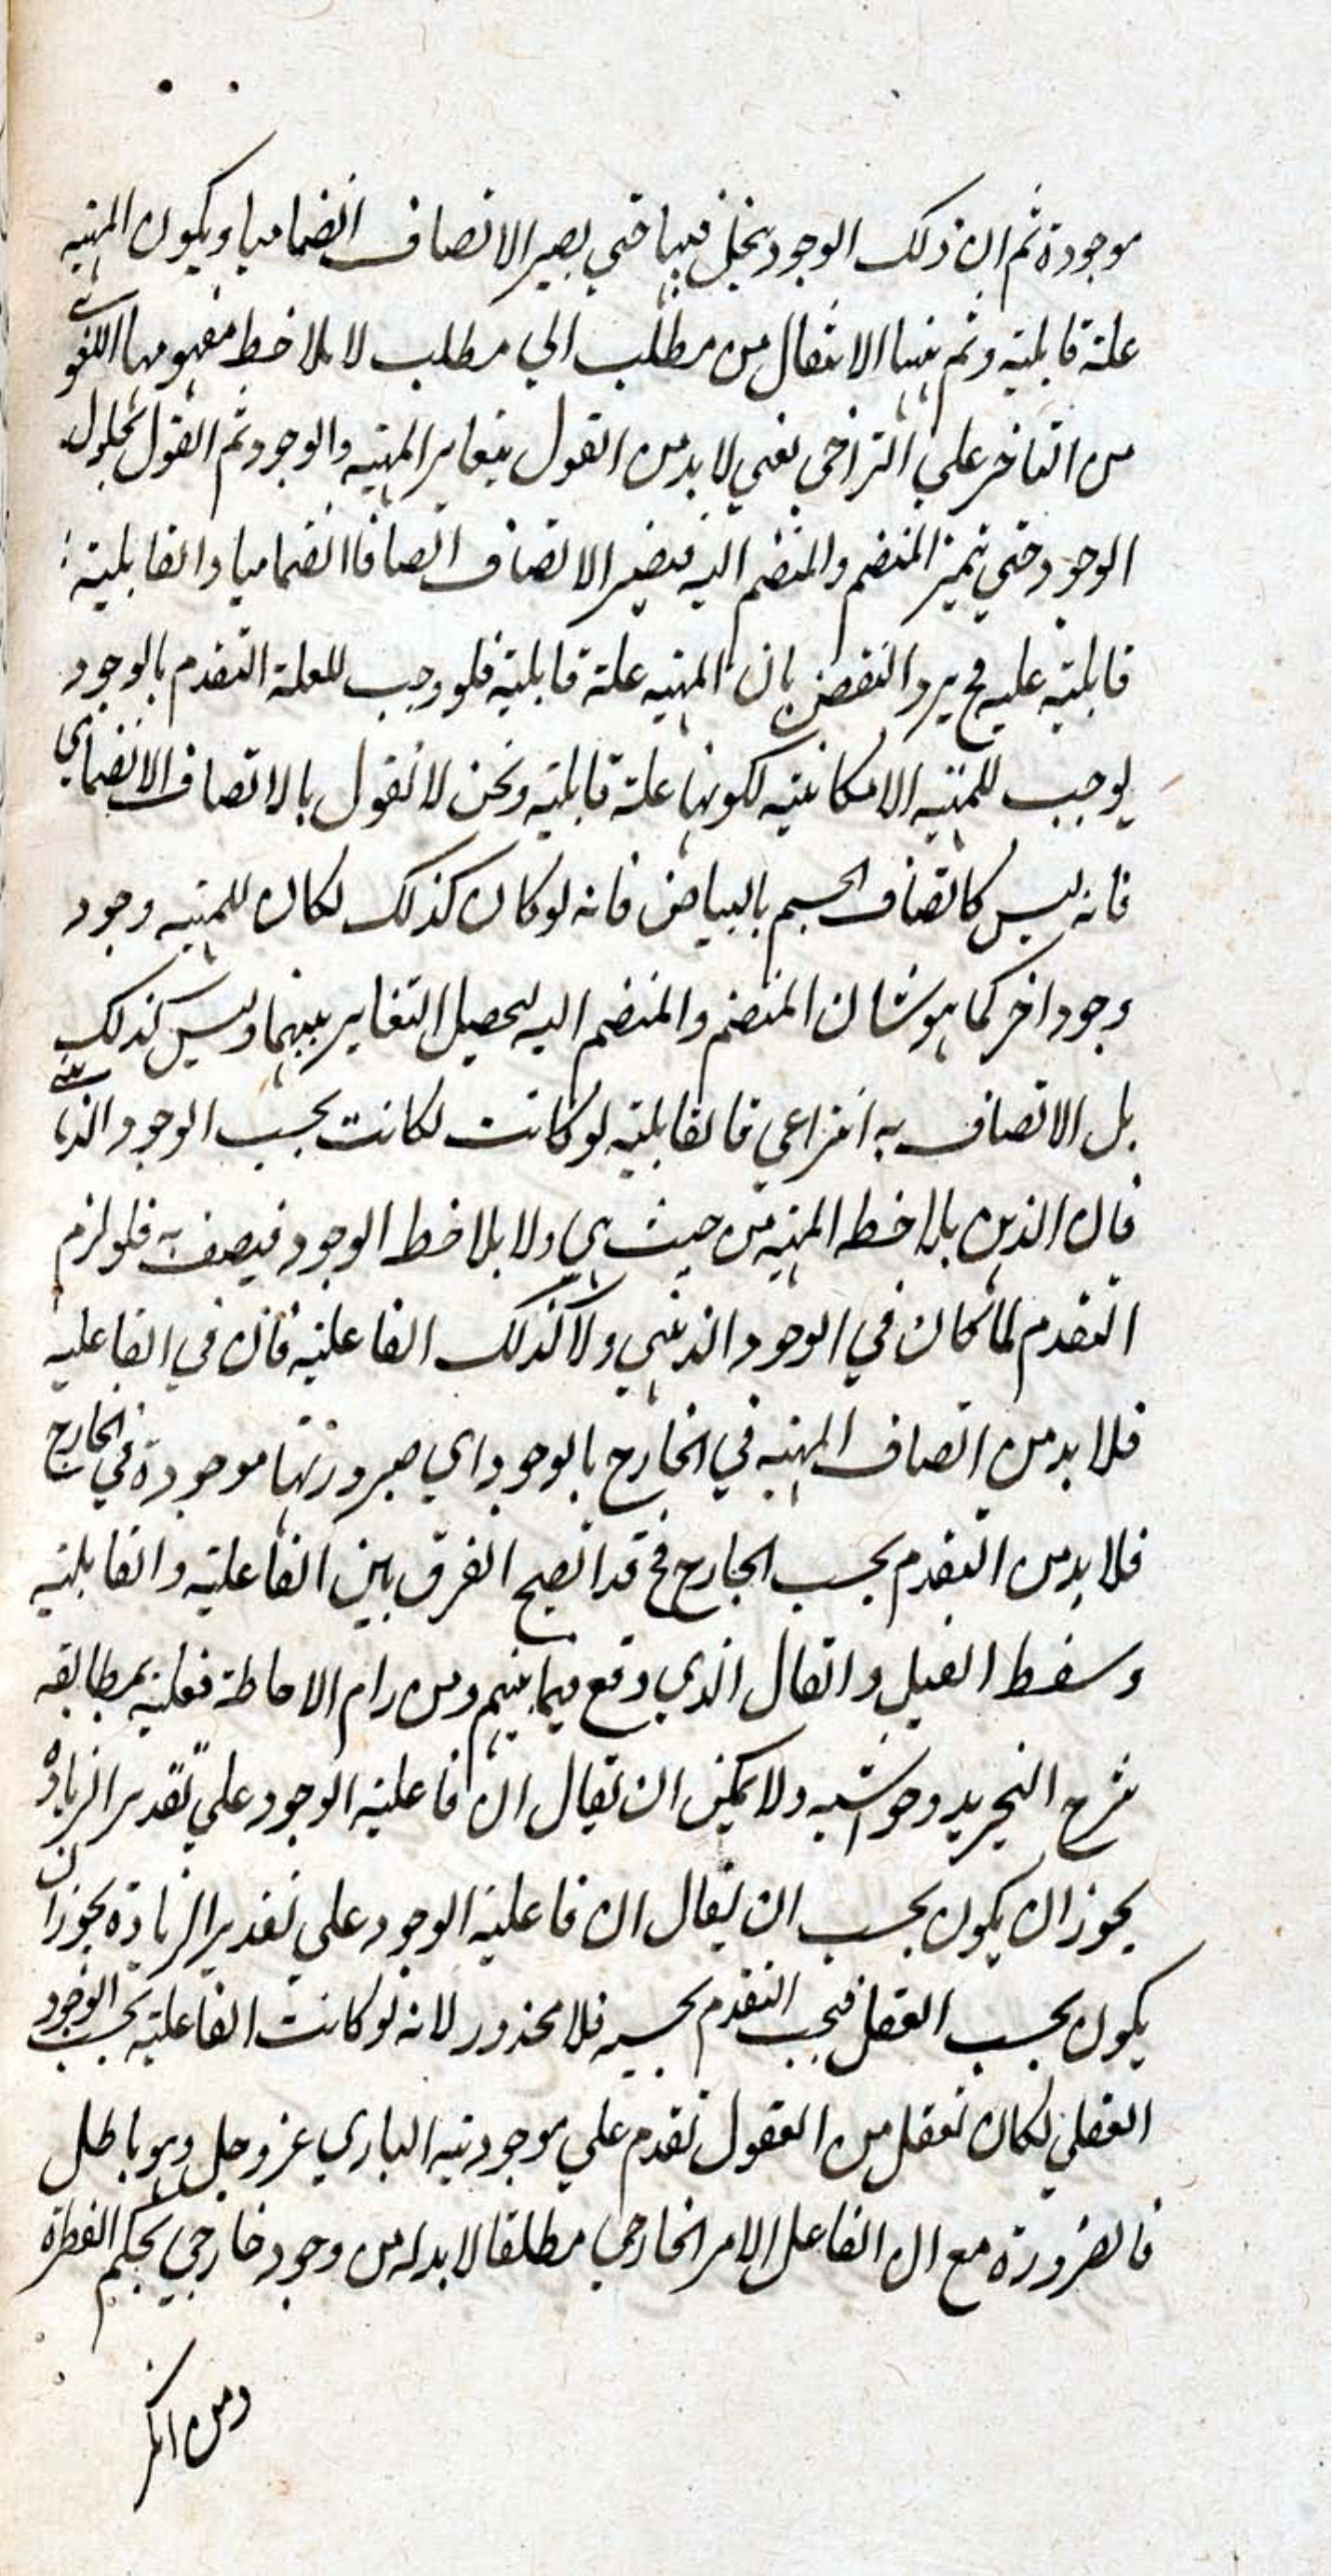 موجودة ثم ان ذلك الوجود يحل فيها حتى يصير الاتصاف انضماميا ويكون المهية
علة قابلية وثم ههنا الانتقال من مطلب الي مطلب لا بملاحظ مفهومها اللغوي
من التاخر علي التراخي يعني لا بد من القول بتغاير المهية والوجود ثم القول بحلول
الوجود حتي تميز المنضم والمنضم اليه فيصير الاتصاف اتصافا انضماميا والقابلية
قابلية عليه فح يرد النقض بان المهية علة قابلية فلو وجب للعلة التقدم بالوجود
لوجب للمهية الامكانية لكونها علة قابلية ونحن لا نقول بالاتصاف الانضمامي
فانه ليس كاتصاف الجسم بالبياض فانه لو كان كذلك لكان للمهية وجود
وجود اخر كما هو شان المنضم والمنضم اليه ليحصل التغاير بينهما وليس كذلك
بل الاتصاف به انتزاعي فالقابلية لو كانت لكانت بحسب الوجود الذهني
فان الذهن يلاحظ المهية من حيث هي ولا يلاحظ الوجود فيصف به فلو لزم
التقدم لما كان في الوجود الذهني ولا كذلك الفاعلية فان في الفاعلية
فلا بد من اتصاف المهية في الخارج بالوجود اي صيرورتها موجودة في الخارج
فلا بد من التقدم بحسب الخارج فح قد اتضح الفرق بين الفاعلية والقابلية
وسقط القيل والقال الذي وقع فيما بينهم ومن رام الاحاطة فعليه بمطالعة
شرح التجريد وحواشيه ولا يمكن ان يقال ان فاعلية الوجود علي تقدير الزيادة
يجوز ان يكون بحسب ان يقال ان فاعلية الوجود علي تقدير الزيادة يجوز ان
يكون بحسب العقل فيجب التقدم بحسبه فلا محذور لانه لو كانت الفاعلية بحسب الوجود
العقلي لكان تعقل من العقول تقدم علي موجودية الباري عز وجل وهو باطل
فالضرورة مع ان الفاعل الامر الخارجي مطلقا لا بد له من وجود خارجي بحكم الفطرة
ومن انكر